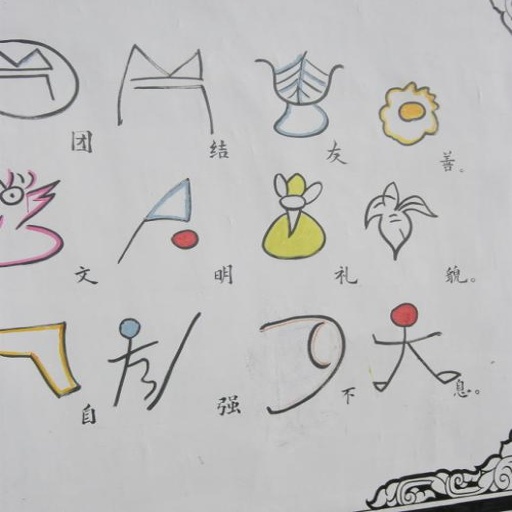 团结友善。
文明礼貌。
自强不息。